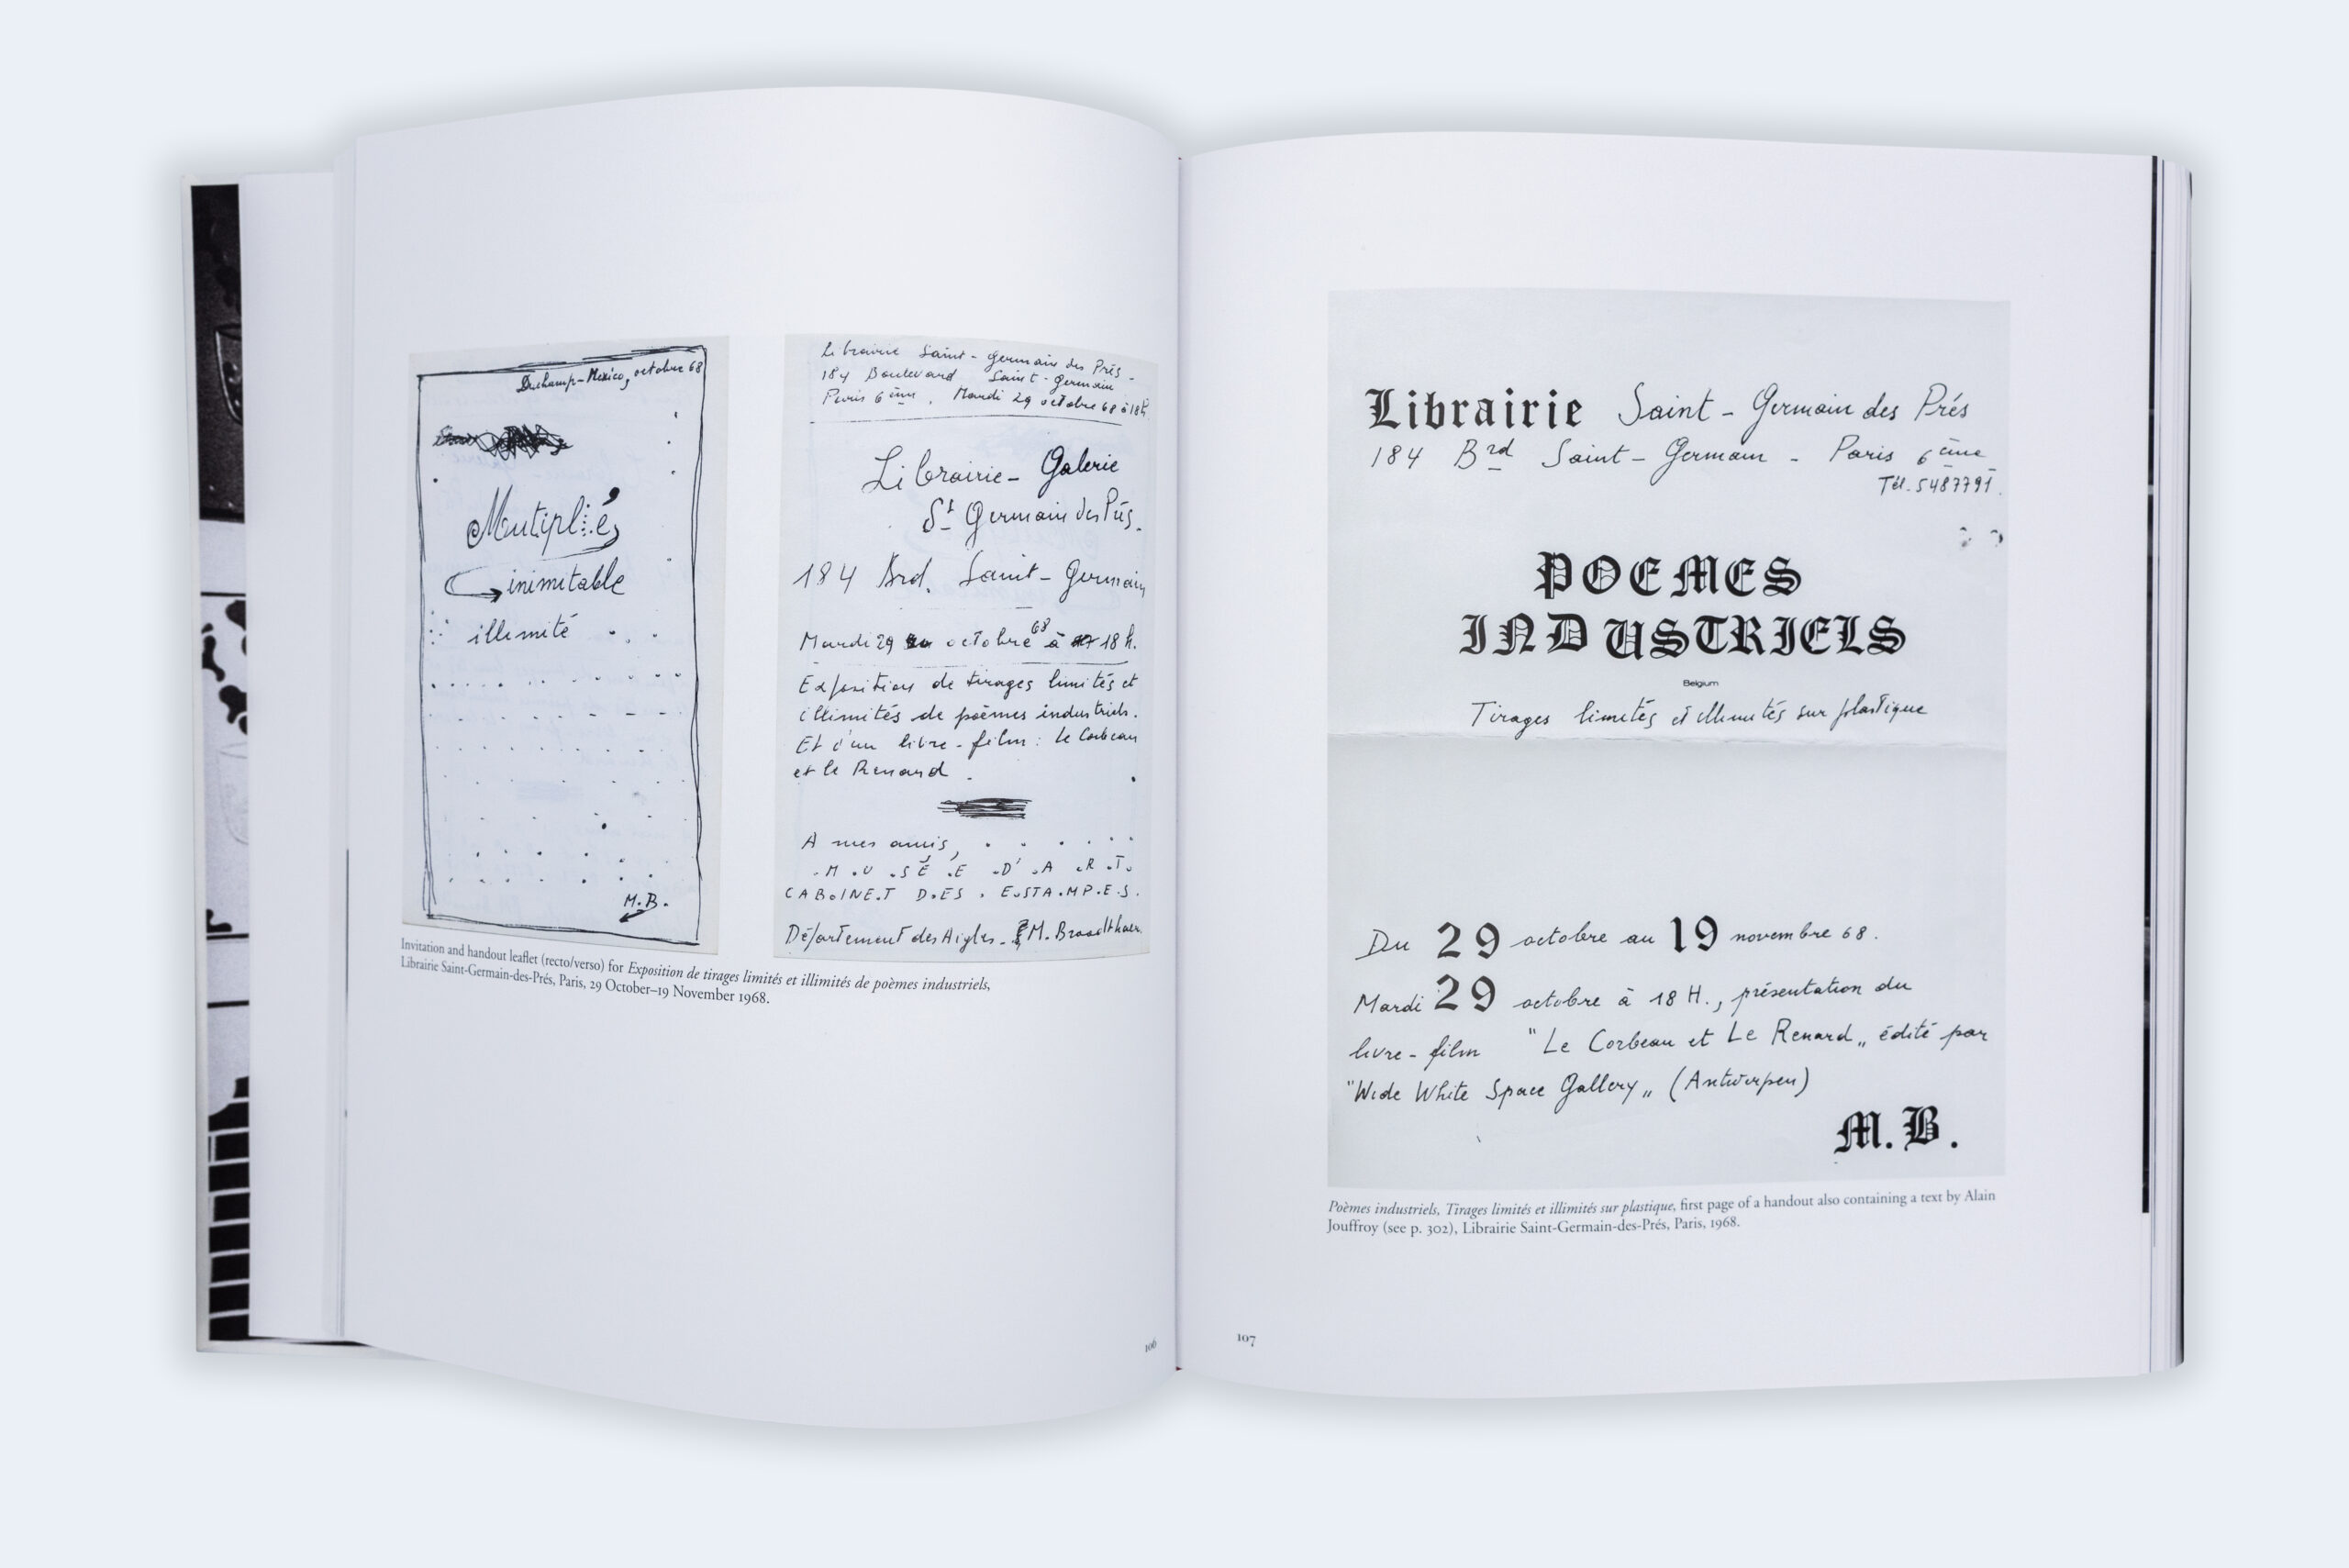 Duchamp-Mexico, octobre 68
Multiplié
inimitable
illimité
M.B.
Librairie Saint-Germain des Prés -
184 Boulevard Saint-Germain
Paris 6ème. Mardi 29 octobre 68 à 18h.
Librairie - Galerie
St Germain des Prés.
184 Brd. Saint-Germain
Mardi 29 octobre 68 à 18 h.
Exposition de tirages limités et
illimités de poèmes industriels.
Et d'un livre-film : le Corbeau
et le Renard.
A mes amis, . . . . . .
.M.U.SÉ.E .D'.A.R.T.
CAB.INE.T D.ES. E.STA.MP.E.S.
Département des Aigles. M. Broodthaers.
Invitation and handout leaflet (recto/verso) for Exposition de tirages limités et illimités de poèmes industriels,
Librairie Saint-Germain-des-Prés, Paris, 29 October–19 November 1968.
106
Librairie Saint-Germain des Prés
184 Brd Saint-Germain - Paris 6ème
Tél. 5487791.
POEMES
INDUSTRIELS
Belgium
Tirages limités et illimités sur plastique
Du 29 octobre au 19 novembre 68.
Mardi 29 octobre à 18 H., présentation du
livre-film "Le Corbeau et Le Renard„ édité par
"Wide White Space Gallery„ (Antwerpen)
M.B.
Poèmes industriels, Tirages limités et illimités sur plastique, first page of a handout also containing a text by Alain
Jouffroy (see p. 302), Librairie Saint-Germain-des-Prés, Paris, 1968.
107